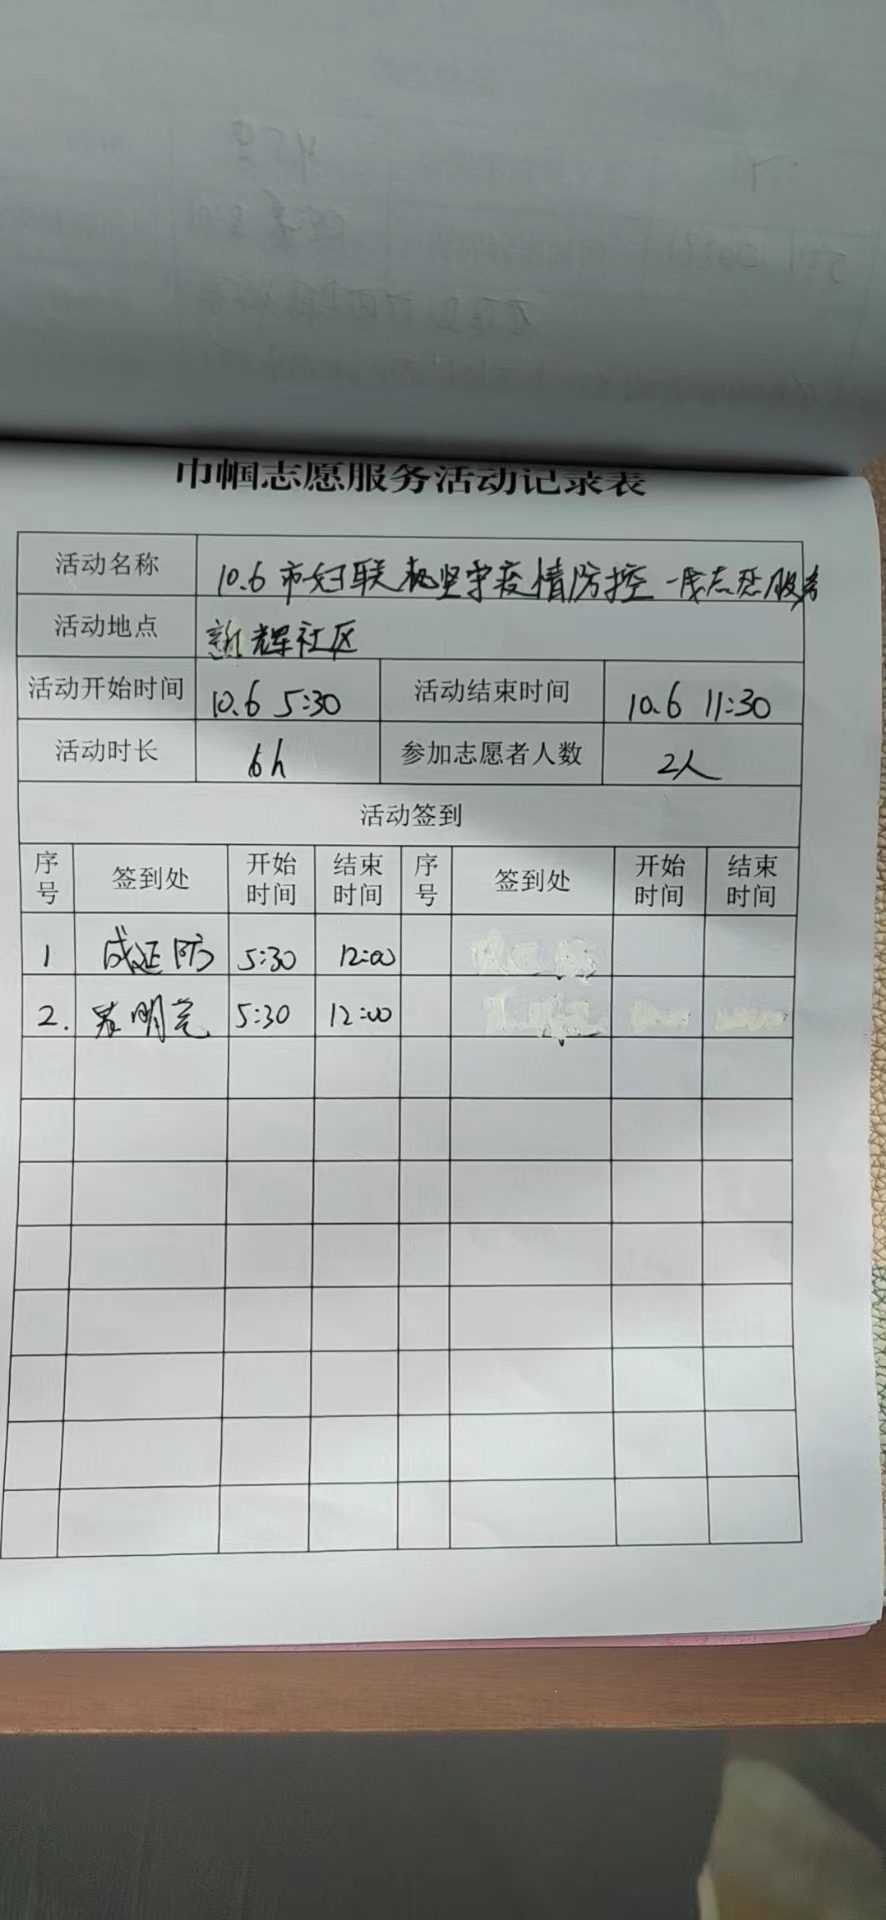 巾帼志愿服务活动记录表
活动名称 10.6 市妇联 坚守疫情防控一线志愿服务
活动地点 新辉社区
活动开始时间 10.6 5:30 活动结束时间 10.6 11:30
活动时长 6h 参加志愿者人数 2人
活动签到
序号 签到处 开始时间 结束时间 序号 签到处 开始时间 结束时间
1 成延防 5:30 12:00
2. 明 5:30 12:00